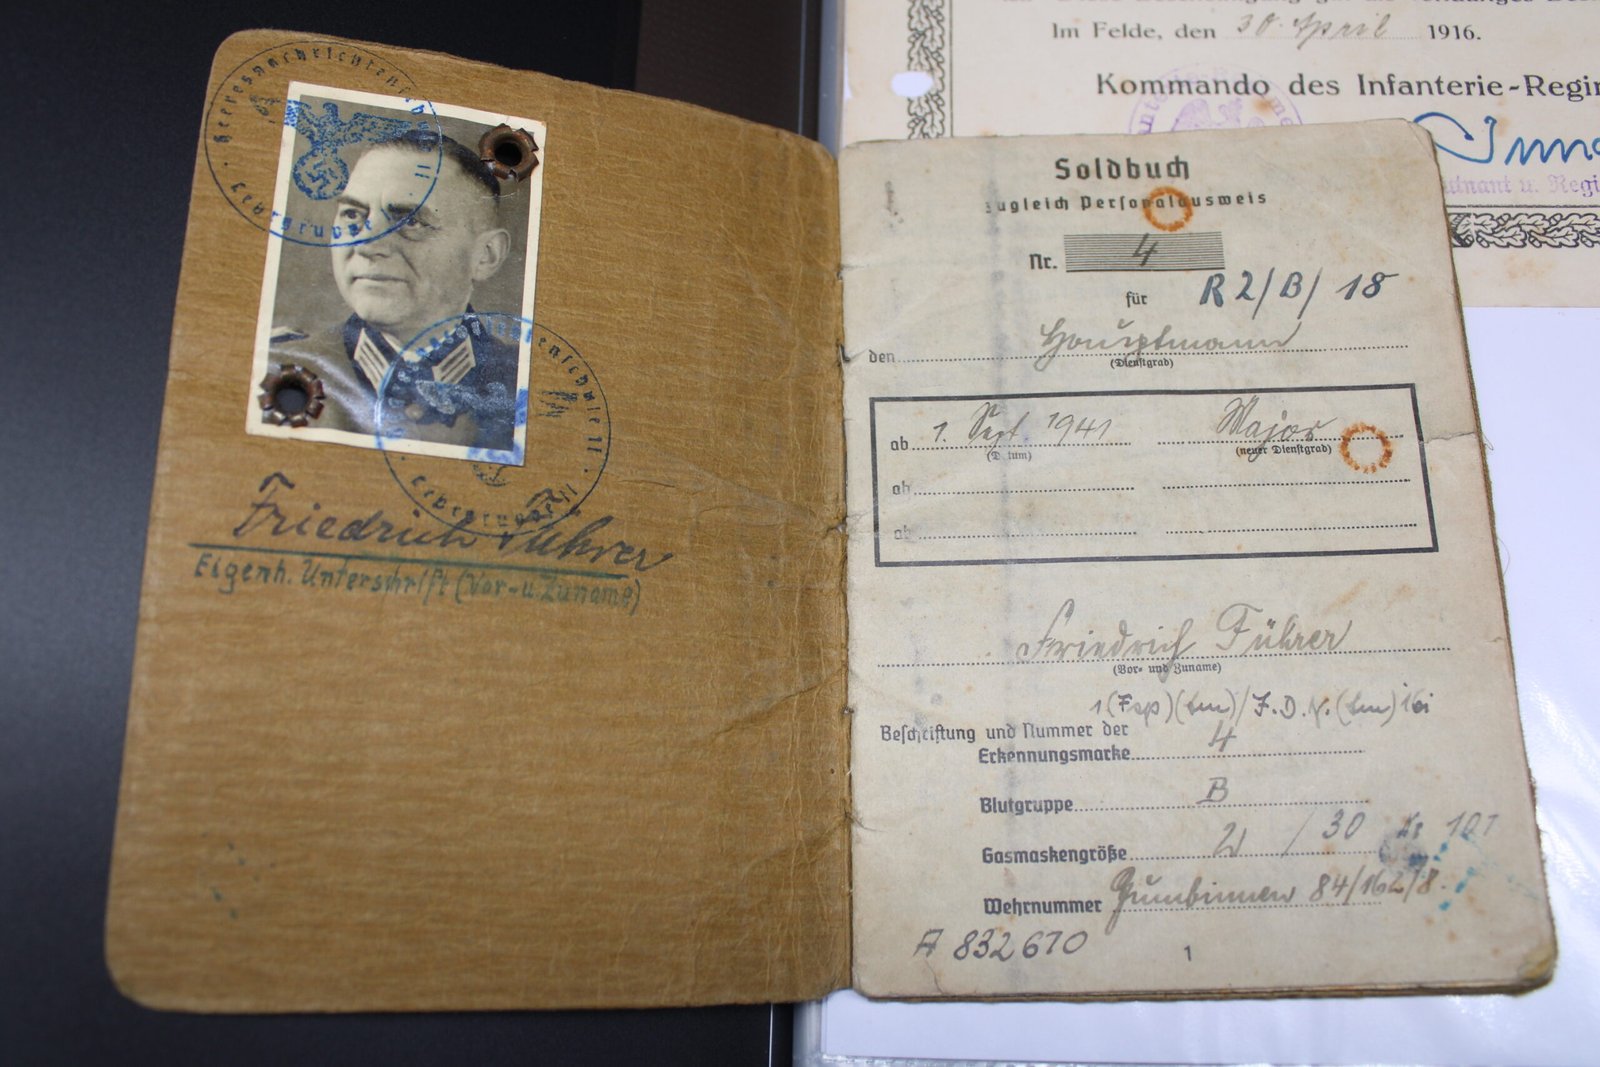 Heeresnachrichtenschule II
Lehrgruppe II
Friedrich Führer
Eigenh. Unterschrift (Vor- u. Zuname)
Im Felde, den 30. April 1916.
Kommando des Infanterie-Regi
Soldbuch
zugleich Personalausweis
Nr. 4
für R2/B/18
den Hauptmann
(Dienstgrad)
ab 1. Sept. 1941 Major
(Datum) (neuer Dienstgrad)
ab
ab
Friedrich Führer
(Vor- und Zuname)
Beschriftung und Nummer der
Erkennungsmarke 4
Blutgruppe B
Gasmaskengröße 2 / 30 101
Wehrnummer Gumbinnen 84/162/8.
A 832670
1